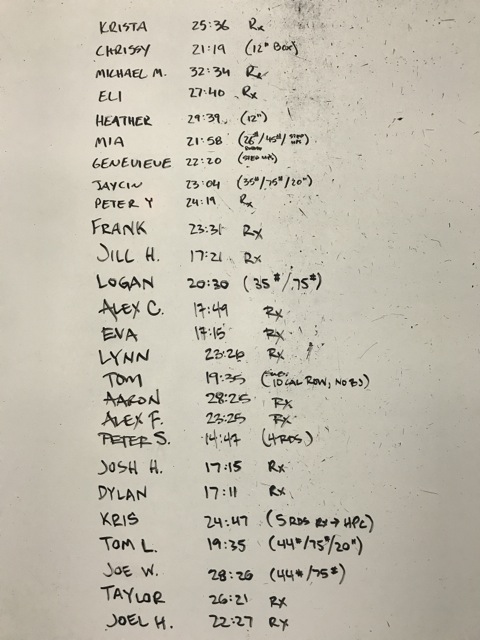 KRISTA 25:36 Rx
CHRISSY 21:19 (12" BOX)
MICHAEL M. 32:34 Rx
ELI 27:40 Rx
HEATHER 29:39 (12")
MIA 21:58 (26#/45#/STEP UPS)
GENEVIEVE 22:20 (STEP UPS)
JAYCIN 23:04 (35#/75#/20")
PETER Y 24:19 Rx
FRANK 23:31 Rx
JILL H. 17:21 Rx
LOGAN 20:30 (35#/75#)
ALEX C. 17:49 Rx
EVA 17:15 Rx
LYNN 23:26 Rx
TOM 19:35 (10 CAL ROW, NO BJ)
AARON 28:25 Rx
ALEX F. 23:25 Rx
PETER S. 14:47 (4 RDS)
JOSH H. 17:15 Rx
DYLAN 17:11 Rx
KRIS 24:47 (5 RDS RX → HPC)
TOM L. 19:35 (44#/75#/20")
JOE W. 28:26 (44#/75#)
TAYLOR 26:21 Rx
JOEL H. 22:27 Rx